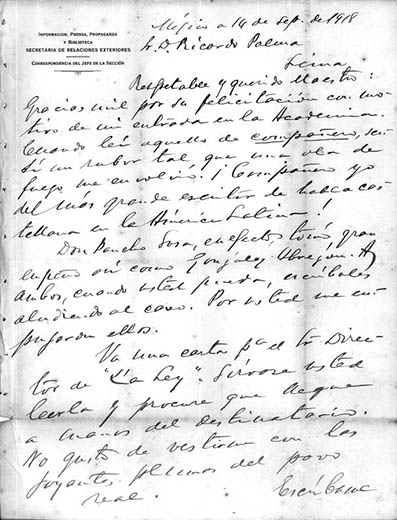 INFORMACION, PRENSA, PROPAGANDA
Y BIBLIOTECA
SECRETARIA DE RELACIONES EXTERIORES
CORRESPONDENCIA DEL JEFE DE LA SECCIÓN
México a 14 de sep. de 1918
Sr. D. Ricardo Palma
Lima
Respetable y querido Maestro:
Gracias mil por su felicitación con mo-
tivo de mi entrada en la Academia.
Cuando leí aquello de compañero, sen-
tí un rubor tal que una ola de
fuego me envolvió. ¡Compañero yo
del más grande escritor de habla cas-
tellana en la América Latina!
Don Pancho Sosa, en efecto, tomó gran
empeño así como González Obregón. A
ambos, cuando usted pueda, escríbales
aludiendo al caso. Por usted me em-
pujaron ellos.
Va una carta pa. el Sr Direc-
tor de "La Ley". Sírvase usted
leerla y procure que llegue
a manos del destinatario.
No gusto de vestirme con las
plumas del pavo
real.
Escríbame